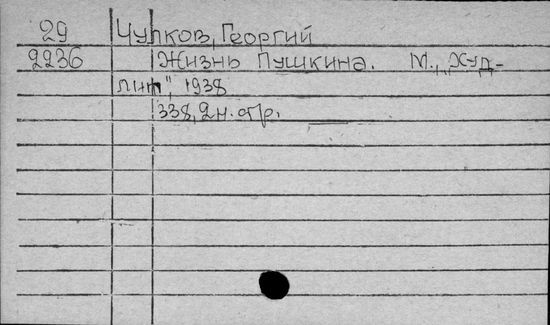 29 Чулков, Георгий
2236 Жизнь Пушкина. М., „Худ-
лит", 1938
338, 2н. стр.